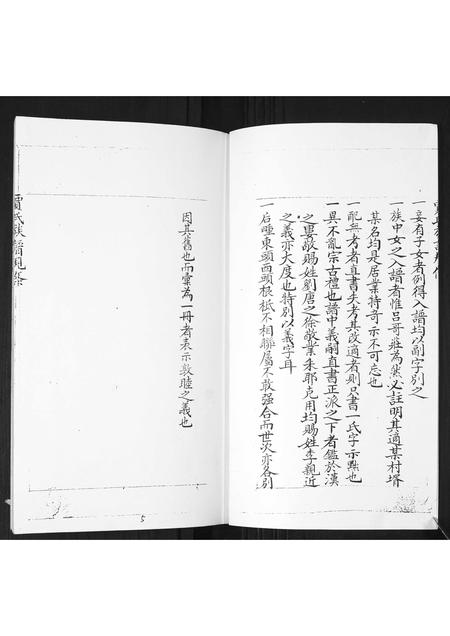 一妾有子女者例得入譜均以副字別之
一族中女之入譜者惟呂哥莊為然必註明其適某村壻
某名均是居業特奇示不可忘也
一配無考者直書失考其改適者則只書一氏字示黜也
一異不亂宗古禮也譜中義嗣直書正派之下者鑑於漢
之婁敬賜姓劉唐之徐敬業朱耶克用均賜姓李親近
之義亦大度也特別以義字耳
一后疃東頭西頭根柢不相聯屬不敢强合而世次亦各別
因其舊也而彙為一冊者表示敦睦之義也
賈氏族譜凡例
5